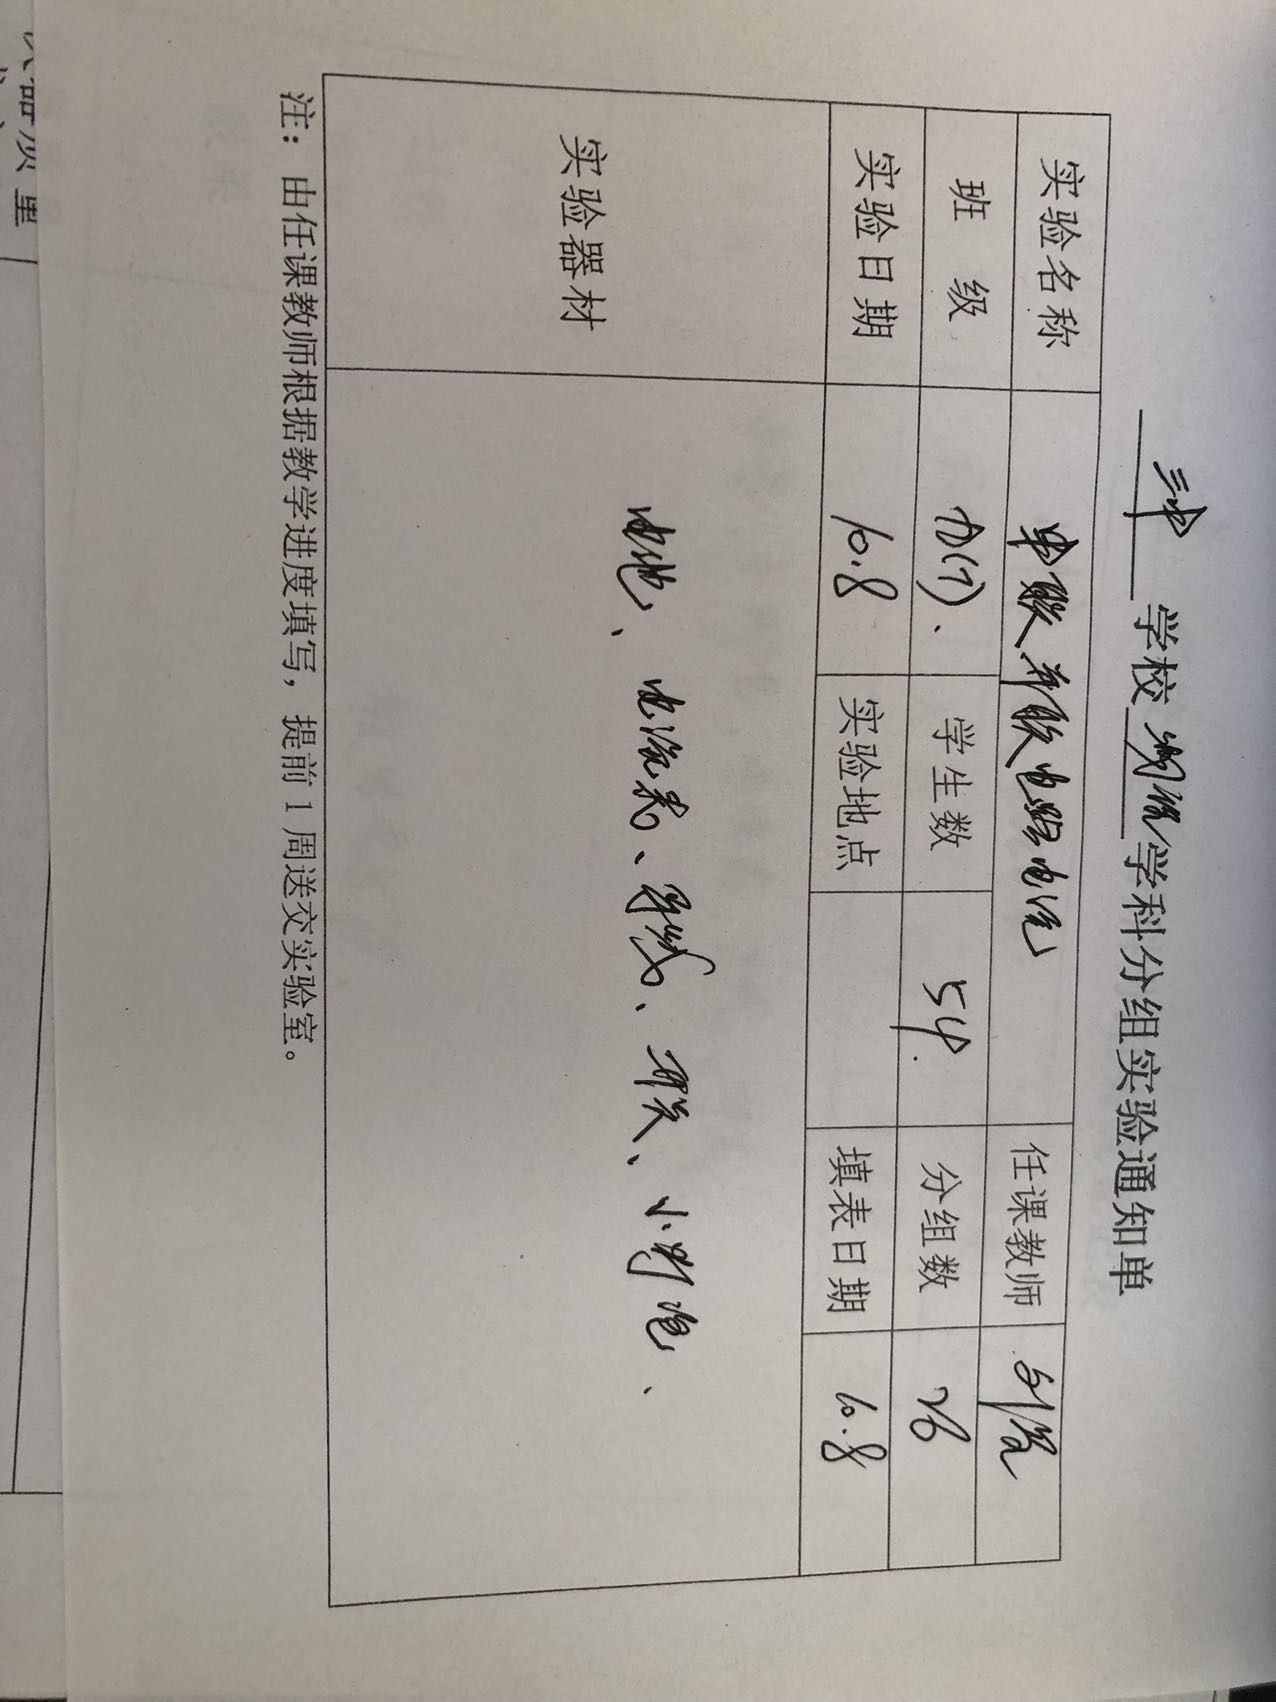 三中学校物理学科分组实验通知单
实验名称 串联并联电路电流 任课教师
班 级 九(7). 学生数 54. 分组数 26
实验日期 10.8 实验地点 填表日期 10.8
实验器材 电池、电流表、导线、开关、小灯泡、
注：由任课教师根据教学进度填写，提前1周送交实验室。